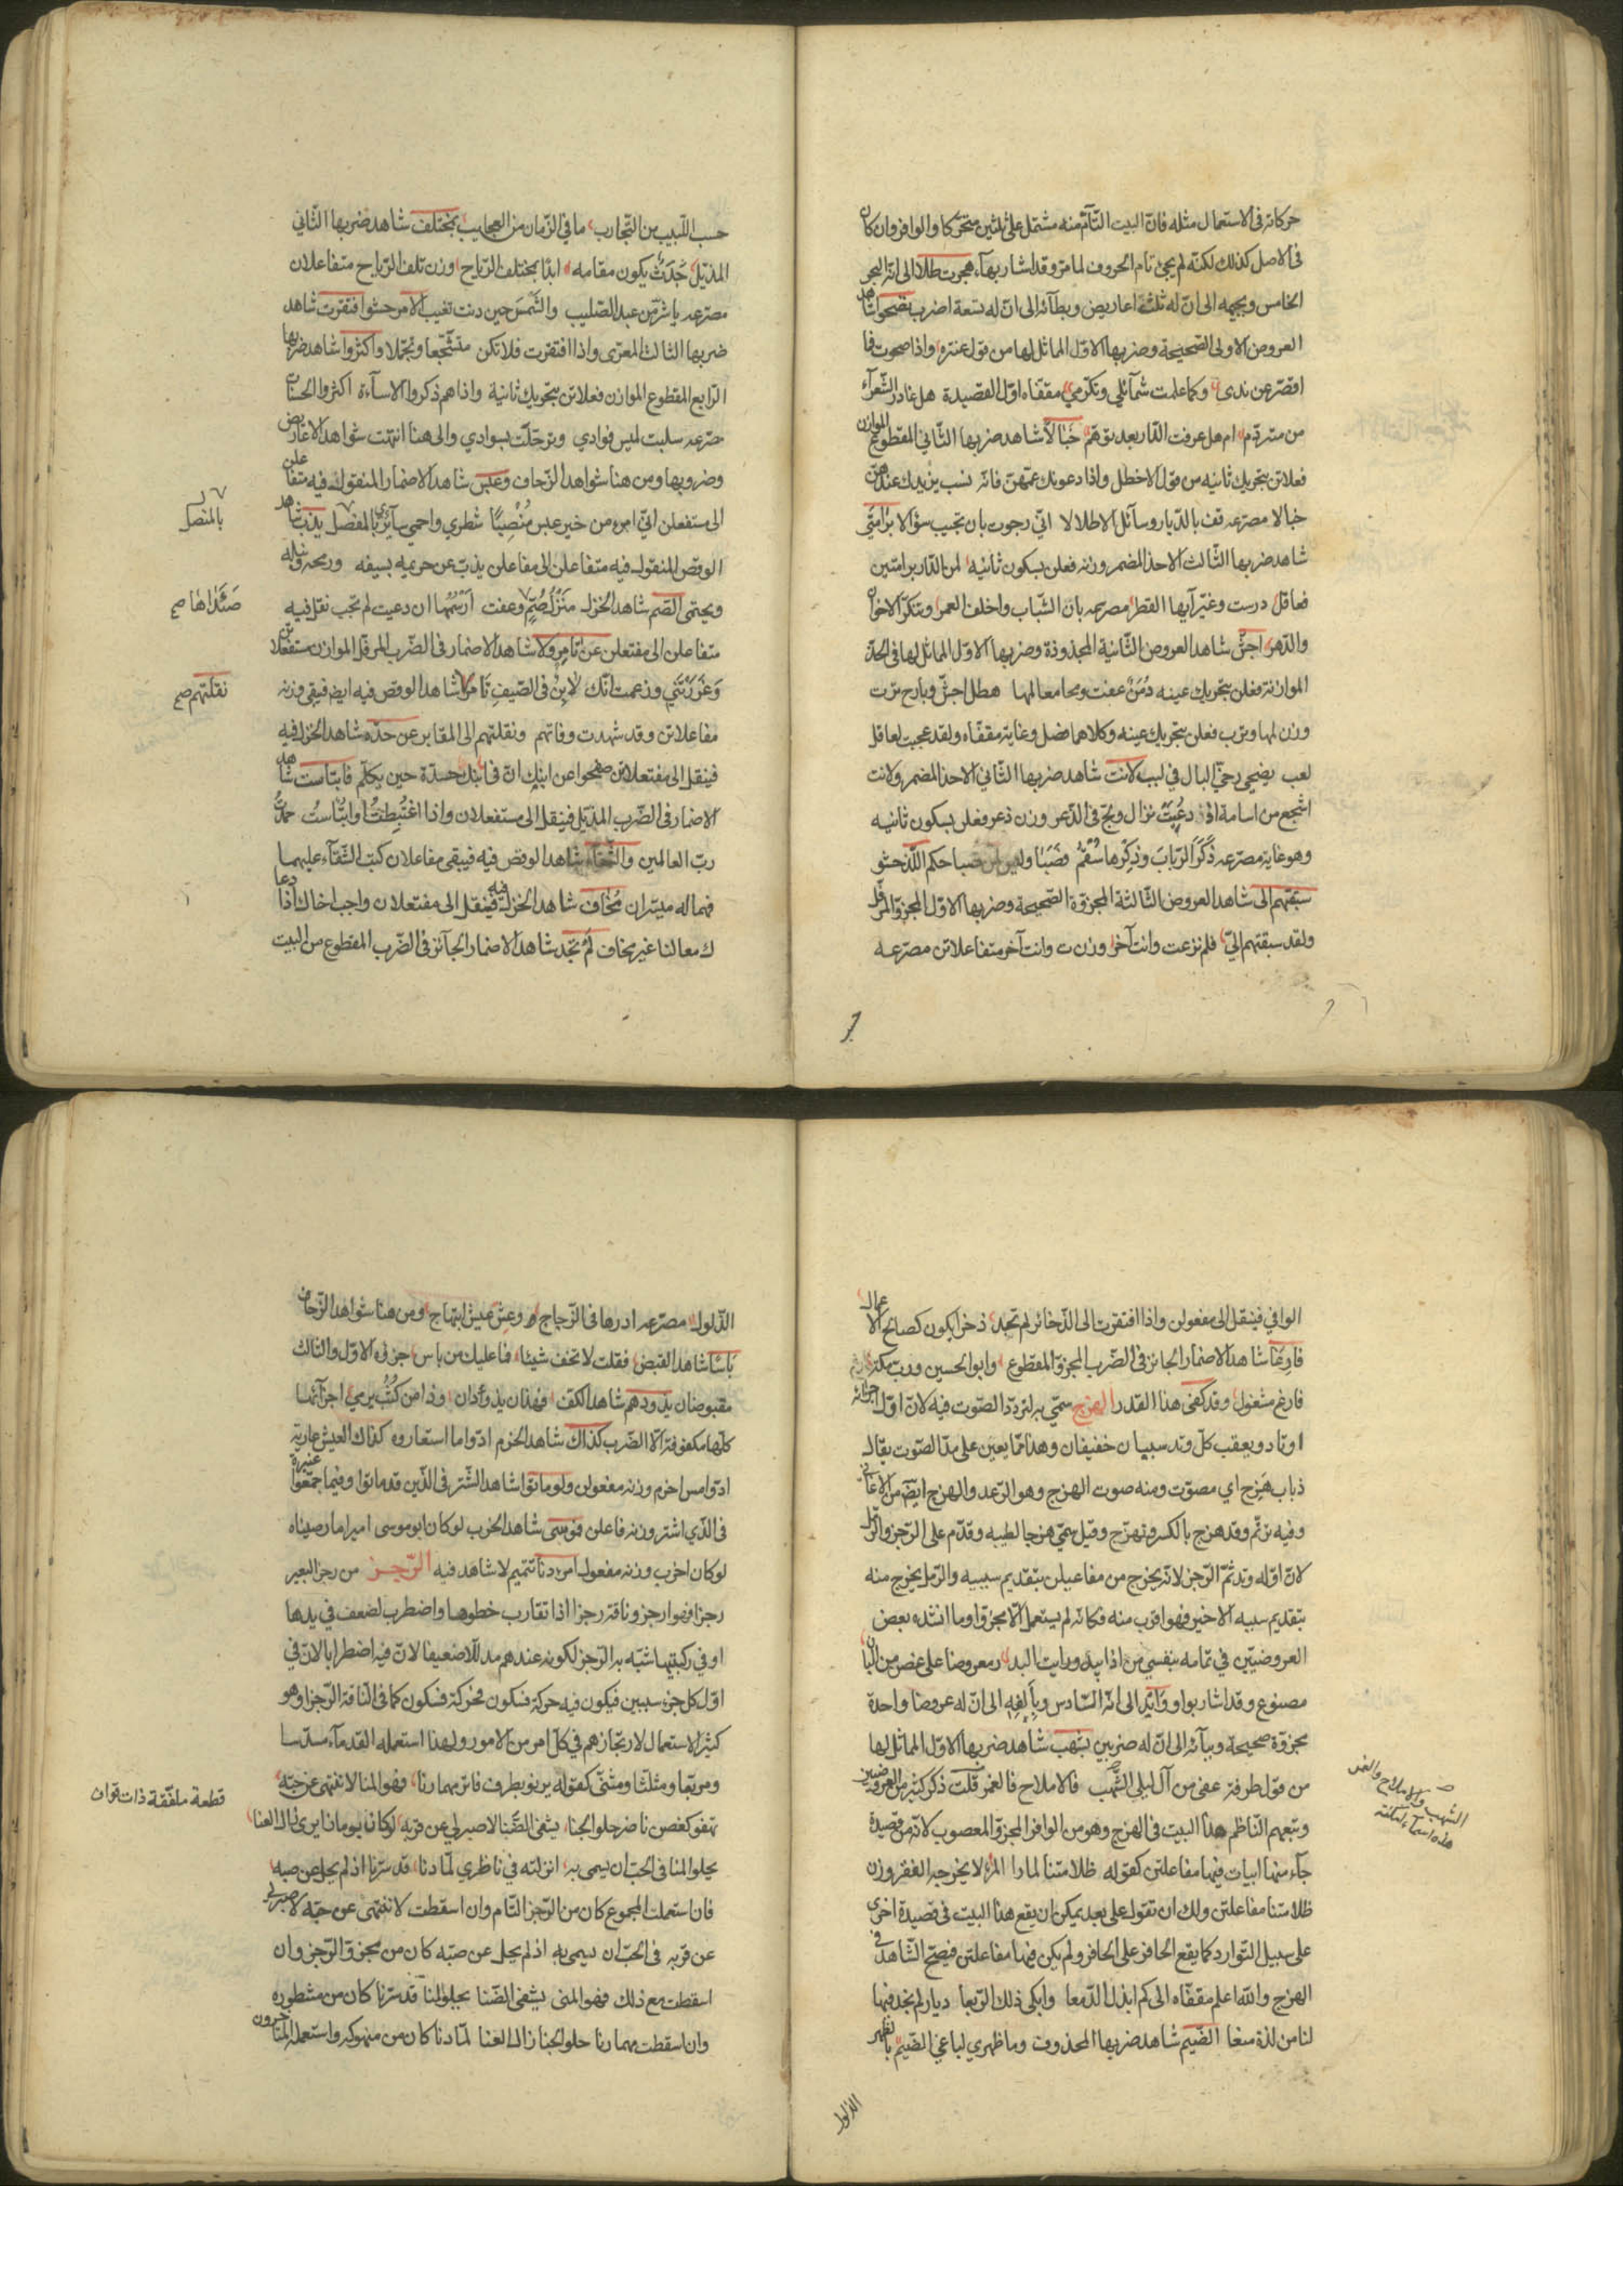 حركاته في الاستعمال مثله فان البيت التام منه مشتمل على ثلثين متحركا والوافر وان كان
في الاصل كذلك لكنه لم يجئ تام الحروف لما مر وقد اشار بهاء هجرت طللا الى انه البحر
الخامس وبجيمه الى ان له ثلثة اعاريض وبطائه الى ان له تسعة اضرب بصحوا شاهد
العروض الاولى الصحيحة وضربها الاول المماثل لها من قول عنتره واذا صحوت فا
اقصر عن ندى وكما علمت شمائلي وتكرمي مقفاه اول القصيدة هل غادر الشعراء
من متردم ام هل عرفت الدار بعد توهم خبالا شاهد ضربها الثاني المقطوع الموازن
فعلاتن بتحريك ثانيه من قول الاخطل واذا دعونك عمهن فانه نسب يزيدك عندهن
خبالا مصرعه قف بالديار وسائل الاطلالا اني رجوت بان تجيب سؤالا برامتي
شاهد ضربها الثالث الاحذ المضمر وزنه فعلن بسكون ثانيه لمن الديار برامتين
فعاقل درست وغير آيها القطر مصرعه بان الشباب واخلف العمر وتنكر الاخوان
والدهر اجش شاهد العروض الثانية المحذوذة وضربها الاول المماثل لها في الحذ
الموازنة فعلن بتحريك عينه دمن عفت ومحا معالمها هطل اجش وبارح ترب
وزن لها وترب فعلن بتحريك عينه وكلاهما فصل وغاية مقفاه ولقد عجبت لعاقل
لعب يضحي رخي البال في لبب لانت شاهد ضربها الثاني الاحذ المضمر ولانت
اشجع من اسامة اذ دعيت نزال ولج في الذعر وزن ذعر فعلن بسكون ثانيه
وهو غاية مصرعه ذكر الرباب وذكرها سقم فصبا وليس لمن صبا حكم اللذ حشو
سبقتهم الى شاهد العروض الثالثة المجزوة الصحيحة وضربها الاول المجزو المرفل
ولقد سبقتهم الي فلم نزعت وانت آخر وزن ت وانت آخر متفاعلاتن مصرعه
حسب اللبيب من التجارب ما في الزمان من العجايب بمختلف شاهد ضربها الثاني
المذيل جدث يكون مقامه ابدا بمختلف الرياح وزن تلف الرياح متفاعلان
مصرعه يا شر من عبد الصليب والشمس حين دنت تغيب الامر حشو افتقرت شاهد
ضربها الثالث المعرى واذا افتقرت فلا تكن متخشعا وتجملا واكثروا شاهد ضربها
الرابع المقطوع الموازن فعلاتن بتحريك ثانية واذا هم ذكروا الاساءة اكثروا الحسنات
مصرعه سلبت لميس فوادي وترحلت بسوادي والى هنا انتهت شواهد الاعاريض
وضروبها ومن هنا شواهد الزحاف وعبس شاهد الاضمار المنقول فيه متفاعلن
الى مستفعلن اني امرء من خير عبس منصبا شطري واحمي سائري بالمفصل يذب شاهد
الوقص المنقول فيه متفاعلن الى مفاعلن يذب عن حريمه بسيفه ورمحه ونبله
ويحتمي الصم شاهد الخزل منزلة صم وعفت ارسمها ان دعيت لم تجب نقل فيه
متفاعلن الى مفتعلن عن تامر ولا شاهد الاضمار في الضرب المرفل الموازن مستفعلاتن
وغررتني وزعمت انك لابن في الصيف تامر شاهد الوقص فيه ايضا فبقي وزنه
مفاعلاتن وقد شهدت وفاتهم ونقلتهم الى المقابر عن حده شاهد الخزل فيه
فينقل الى مفتعلاتن صفحوا عن ابنك ان في ابنك حدة حين يكلم فابتاست شاهد
الاضمار في الضرب المذيل فينقل الى مستفعلان واذا اغتبطت او ابتاست حمدت
رب العالمين والشقاء شاهد الوقص فيه فيبقى مفاعلان كتب الشقاء عليهما
فهما له ميسران مخاف شاهد الخزل فيه فينقل الى مفتعلان واجب اخاك اذا دعا
ك معالنا غير مخاف لم تجد شاهد الاضمار الجائز في الضرب المقطوع من البيت
بالمنصل
صداها صح
نقلتهم صح
الوافي فينقل الى مفعولن واذا افتقرت الى الذخائر لم تجد ذخرا يكون كصالح الاعمال
فارغا شاهد الاضمار الجائز في الضرب المجزو المقطوع وابو الحسين ورب مكة
فارغ مشغول وقد كفى هذا القدر الهزج سمي به لتردد الصوت فيه لان اول اجزائه
اوتاد ويعقب كل وتد سببان خفيفان وهذا مما يعين على مد الصوت يقال
ذباب هزج اي مصوت ومنه صوت الهزج وهو الرعد والهزج ايضا من الاغاني
وفيه ترنم وقد هزج بالكسر وتهزج وقيل سمي هزجا لطيبه وقدم على الرجز والرمل
لان اوله وتد ثم الرجز لانه يخرج من مفاعيلن بتقديم سببيه والرمل يخرج منه
بتقديم سببه الاخير فهو اقرب منه فكانه لم يستعمل الا مجزوا وما انشده بعض
العروضيين في تمامه بنفسي من اذا يبدو رايت البدر معروضا على غصن من البان
مصنوع وقد اشار بواو وآيد الى انه السادس وبالفه الى ان له عروضا واحدة
مجزوة صحيحة وببائه الى ان له ضربين بسهب شاهد ضربها الاول المماثل لها
من قول طرفة عفى من آل ليلى الشهب فالاملاح فالغمر قلت ذكر كثير من العروضيين
وتبعهم الناظم هذا البيت في الهزج وهو من الوافر المجزو المعصوب لانه من قصيدة
جاء منها ابيات فيها مفاعلتن كقوله ظلامتنا لمارا المرء لا يخرجه الفقر وزن
ظلامتنا مفاعلتن ولك ان تقول على بعد يمكن ان يقع هذا البيت في قصيدة اخرى
على سبيل التوارد كما يقع الحافر على الحافر ولم يكن فيها مفاعلتن فيصح الشاهد في
الهزج والله اعلم مقفاه الى كم ابذل الدمعا وابكي ذلك الربعا ديار لم يجد فيها
لنا من لذة سغا الضيم شاهد ضربها المحذوف وما ظهري لباغي الضيم بالظهر
الشهب والاملاح والغمر
هذه اسماء امكنة
الذلول
الذلول مصرعه ادرها في الزجاج وعش عيش ابتهاج ومن هنا شواهد الزحاف
باسا شاهد القبض فقلت لا تخف شيئا فما عليك من باس جزءه الاول والثالث
مقبوضان يذودهم شاهد الكف فهذان يذودان وذا من كثب يرمي اجزائها
كلها مكفوفة الا الضرب كذاك شاهد الخرم ادوا ما استعاروه كذاك العيش عارية
ادوا مس اخرم وزنه مفعولن ولو ماتوا شاهد الشتر في الذين قد ماتوا وفيما جمعوا عبرة
في الذي اشتر وزنه فاعلن موسى شاهد الخرب لو كان ابو موسى اميرا ما رضيناه
لو كان اخرب وزنه مفعول امرءنا تتميم لا شاهد فيه الرجز من رجز البعير
رجزا فهو ارجز وناقة رجزا اذا تقارب خطوها واضطرب لضعف في يدها
او في ركبتيها شبه به الرجز لكونه عندهم مذللا ضعيفا لان فيه اضطرابا لان في
اول كل جزء سببين فيكون فيه حركة فسكون فحركة فسكون كما في الناقة الرجزا وهو
كثير الاستعمال لارتجازهم في كل امر من الامور ولهذا استعمله القدماء مسدسا
ومربعا ومثلثا ومثنى كقوله يرنو بطرف فاتر مهما رنا فهو المنا لا انتهي عن حبه
يهفو كغصن ناضر حلو الجنا يشفي الضنا لا صبر لي عن قربه لو كان يوما زايرى زال العنا
يحلو لنا في الحب ان يسمى به انزلته في ناظري لما دنا قد سرنا اذ لم يحل عن صبه
فان استعملت المجموع كان من الرجز التام وان اسقطت لا انتهي عن حبه لا صبر لي
عن قربه في الحب ان يسمى به اذ لم يحل عن صبه كان من مجزو الرجز وان
اسقطت مع ذلك فهو المنى يشفي الضنا يحلو لنا قد سرنا كان من مشطوره
وان اسقطت مهما رنا حلو الجنا زال العنا لما دنا كان من منهوكه واستعمل المتاخرون
قطعة ملفقة ذات قواف